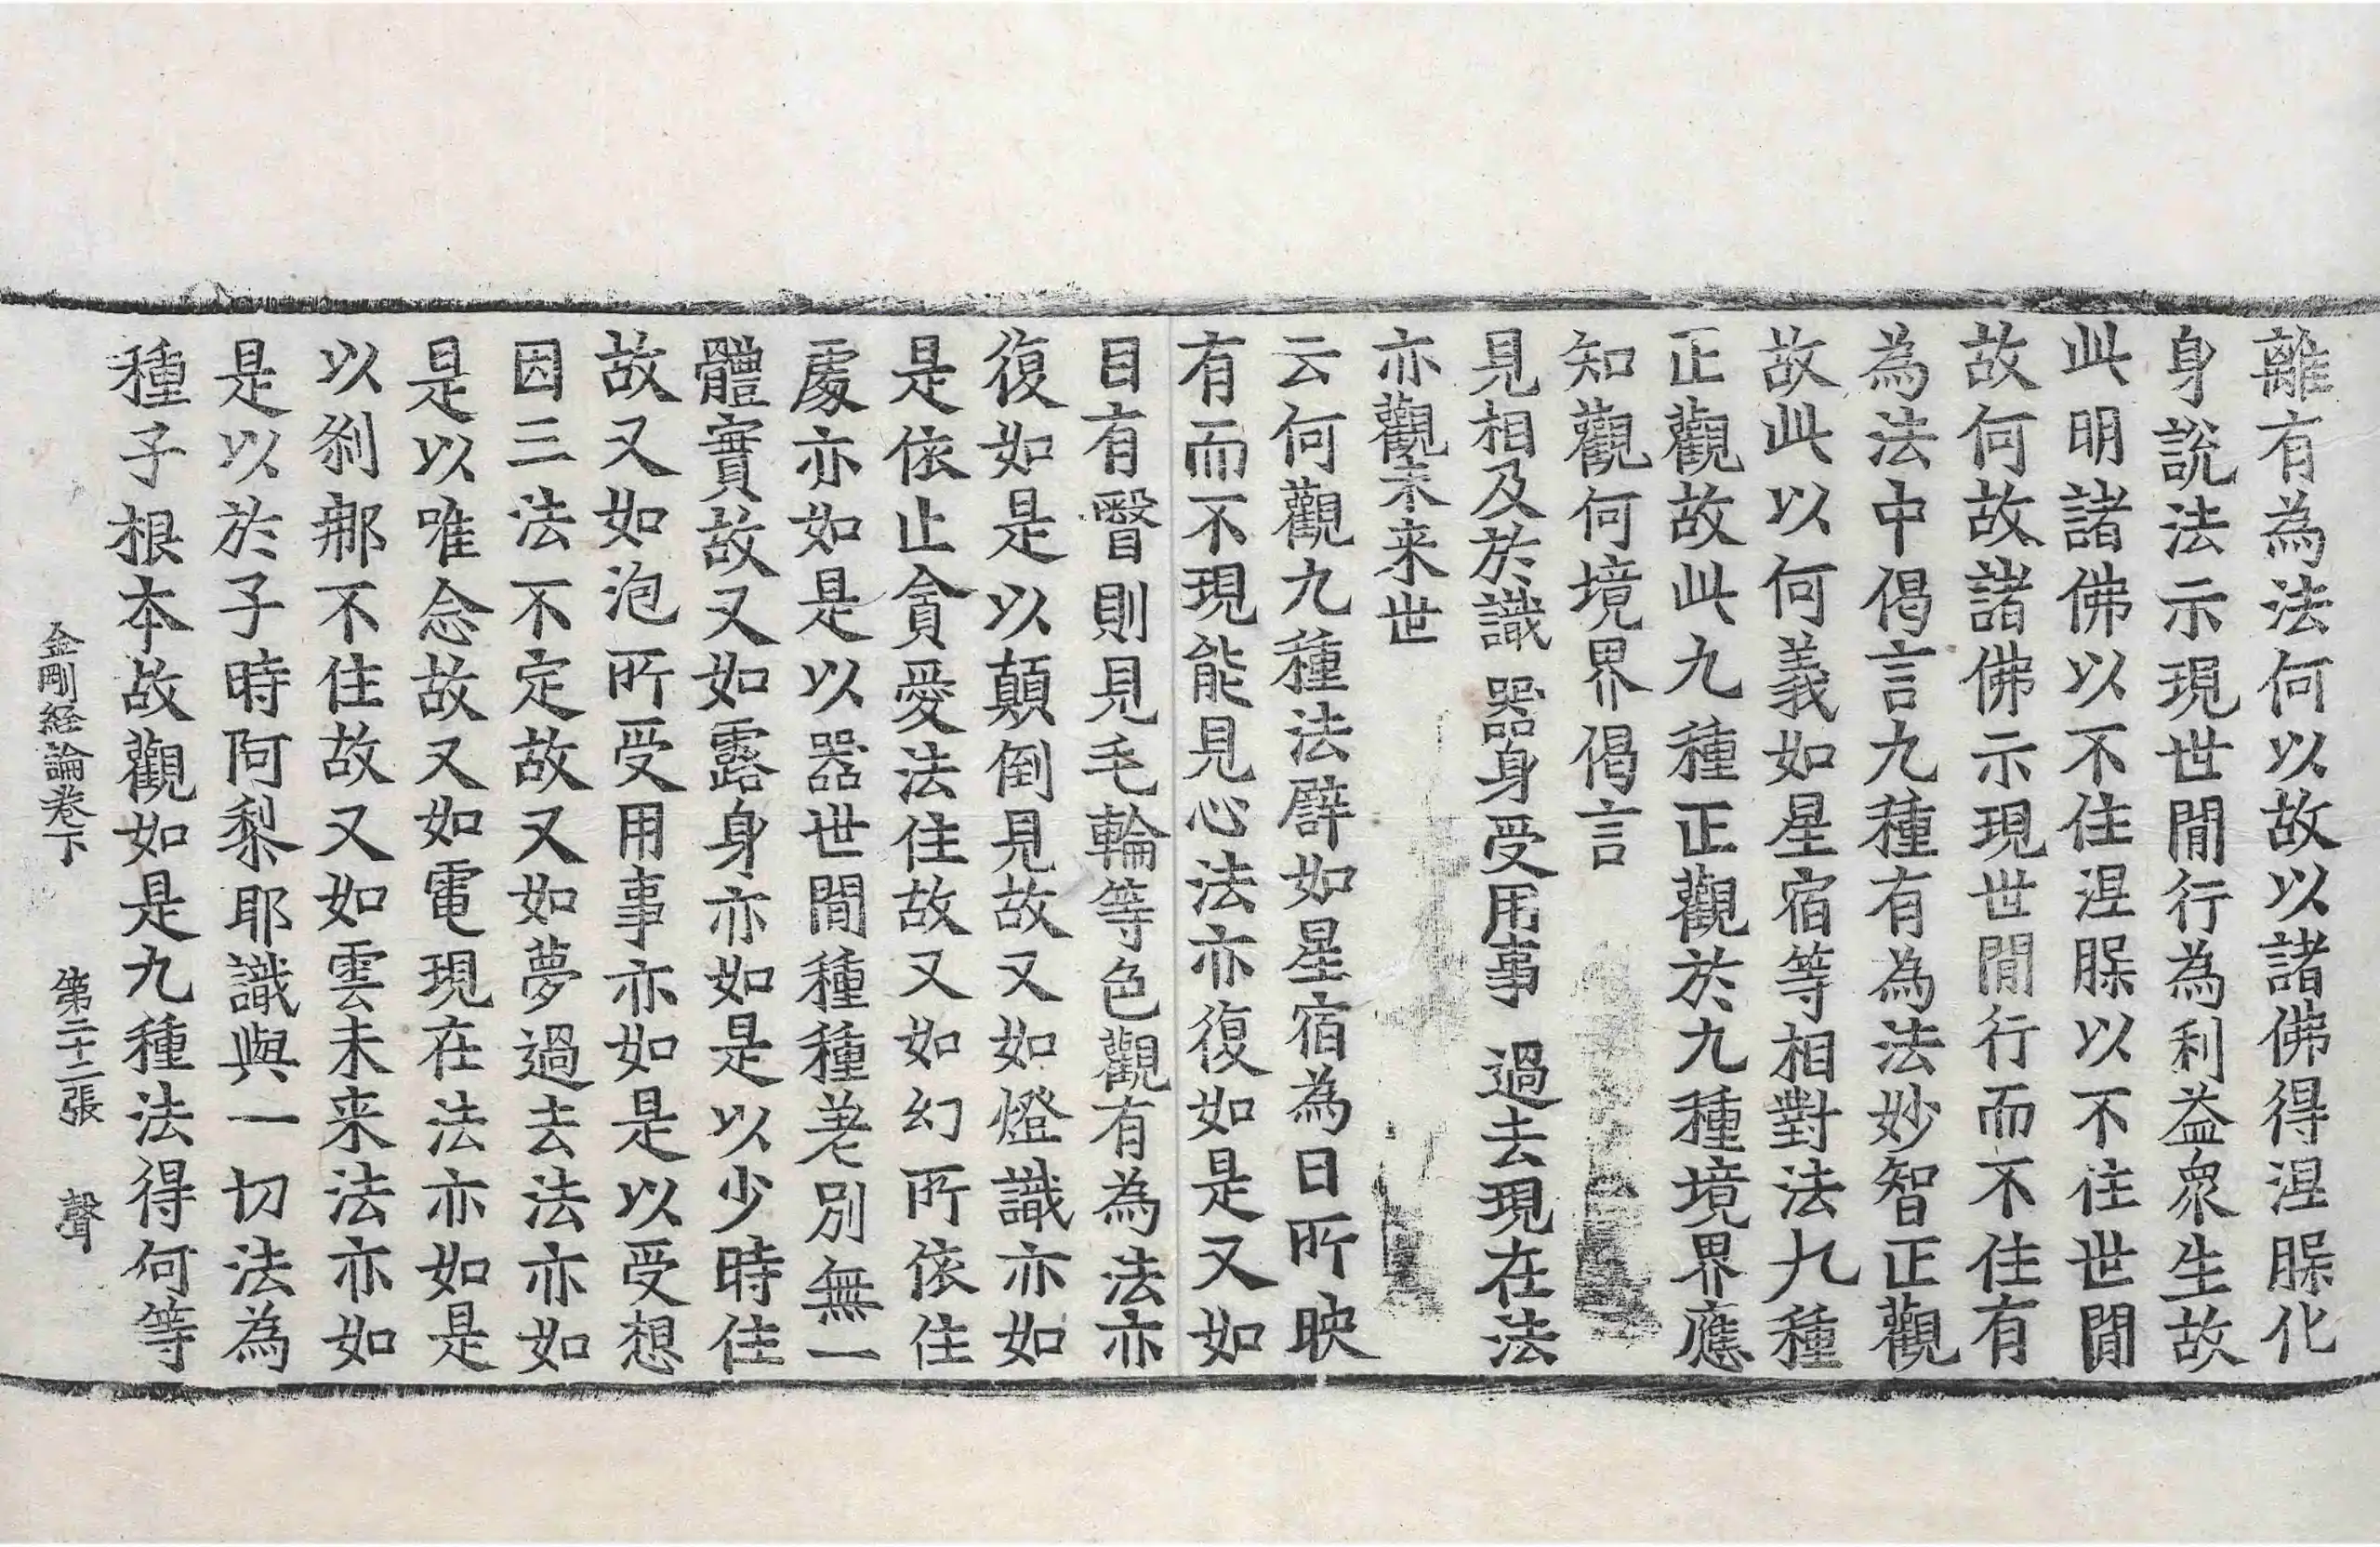 離有為法何以故以諸佛得涅脲化
身說法示現世間行為利益衆生故
此明諸佛以不住涅脲以不住世間
故何故諸佛示現世間行而不住有
為法中偈言九種有為法妙智正觀
故此以何義如星宿等相對法九種
正觀故此九種正觀於九種境界應
知觀何境界偈言
見相及於識 器身受用事 過去現在法
亦觀未来世
云何觀九種法辟如星宿為日所映
有而不現能見心法亦復如是又如
目有瞖則見毛輪等色觀有為法亦
復如是以顛倒見故又如燈識亦如
是依止貪愛法住故又如幻所依住
處亦如是以器世間種種差別無一
體實故又如露身亦如是以少時住
故又如泡所受用事亦如是以受想
因三法不定故又如夢過去法亦如
是以唯念故又如電現在法亦如是
以刹那不住故又如雲未来法亦如
是以於子時阿黎耶識與一切法為
種子根本故觀如是九種法得何等
金剛経論卷下 第二十二張 聲